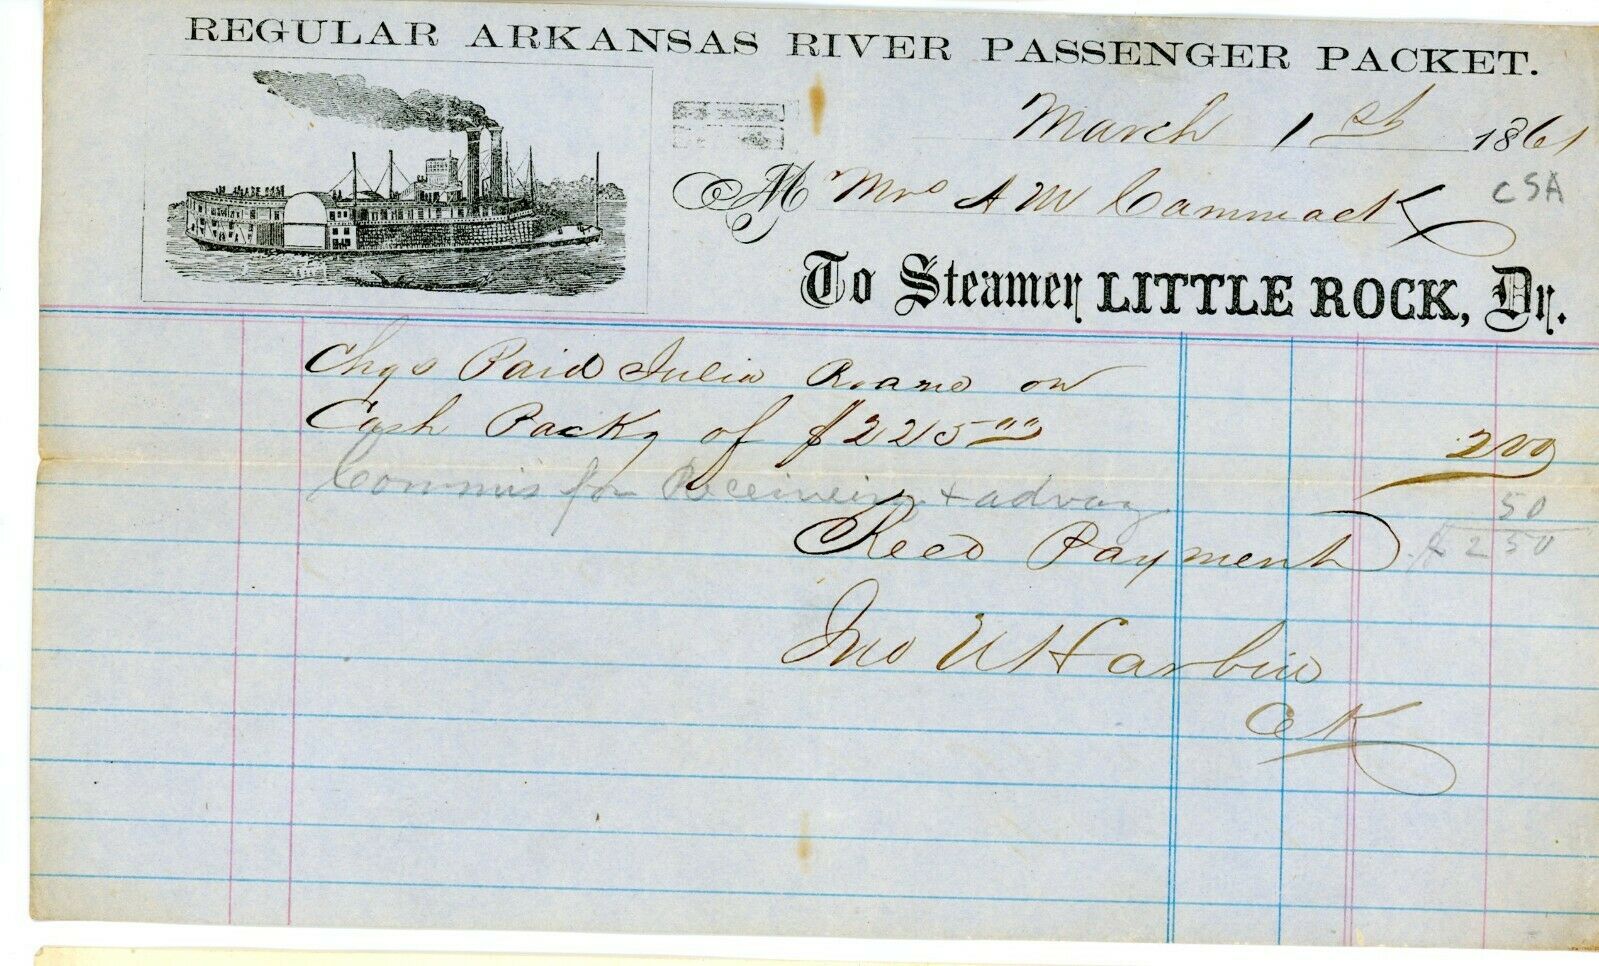 REGULAR ARKANSAS RIVER PASSENGER PACKET.
March 1st 1861
M Mrs A M Cammack CSA
To Steamer LITTLE ROCK, Dr.
Chgs Paid Julia Roane on
Cash Packg of $225.00 2 00
Commis for Receiving & advag 50
$2 50
Recd Payment
Jno W Harbin
Ck